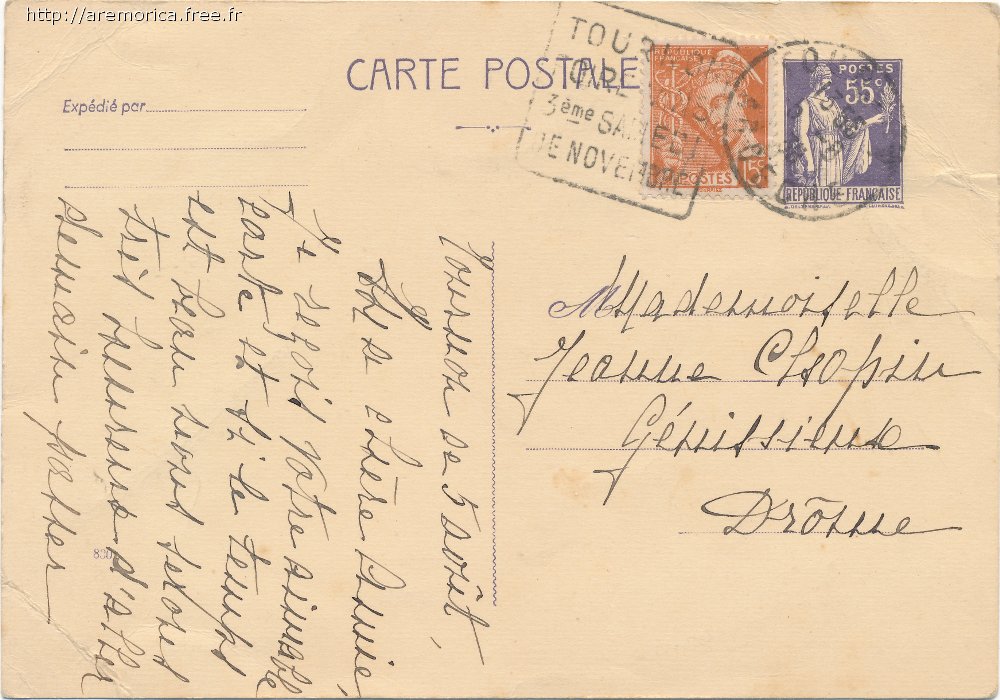 http://aremorica.free.fr
CARTE POSTALE
Expédié par
TOURNON
FOIRE
3ème SAMEDI
DE NOVEMBRE
REPUBLIQUE
FRANÇAISE
POSTES
15c
POSTES
55c
REPUBLIQUE FRANÇAISE
Mademoiselle
Jeanne Chopin
Génissieux
Drôme
Tournon le 5 août,
Ma chère Amie,
J'ai reçois votre aimable
carte et si le temps
est beau nous serons
très heureux d'aller